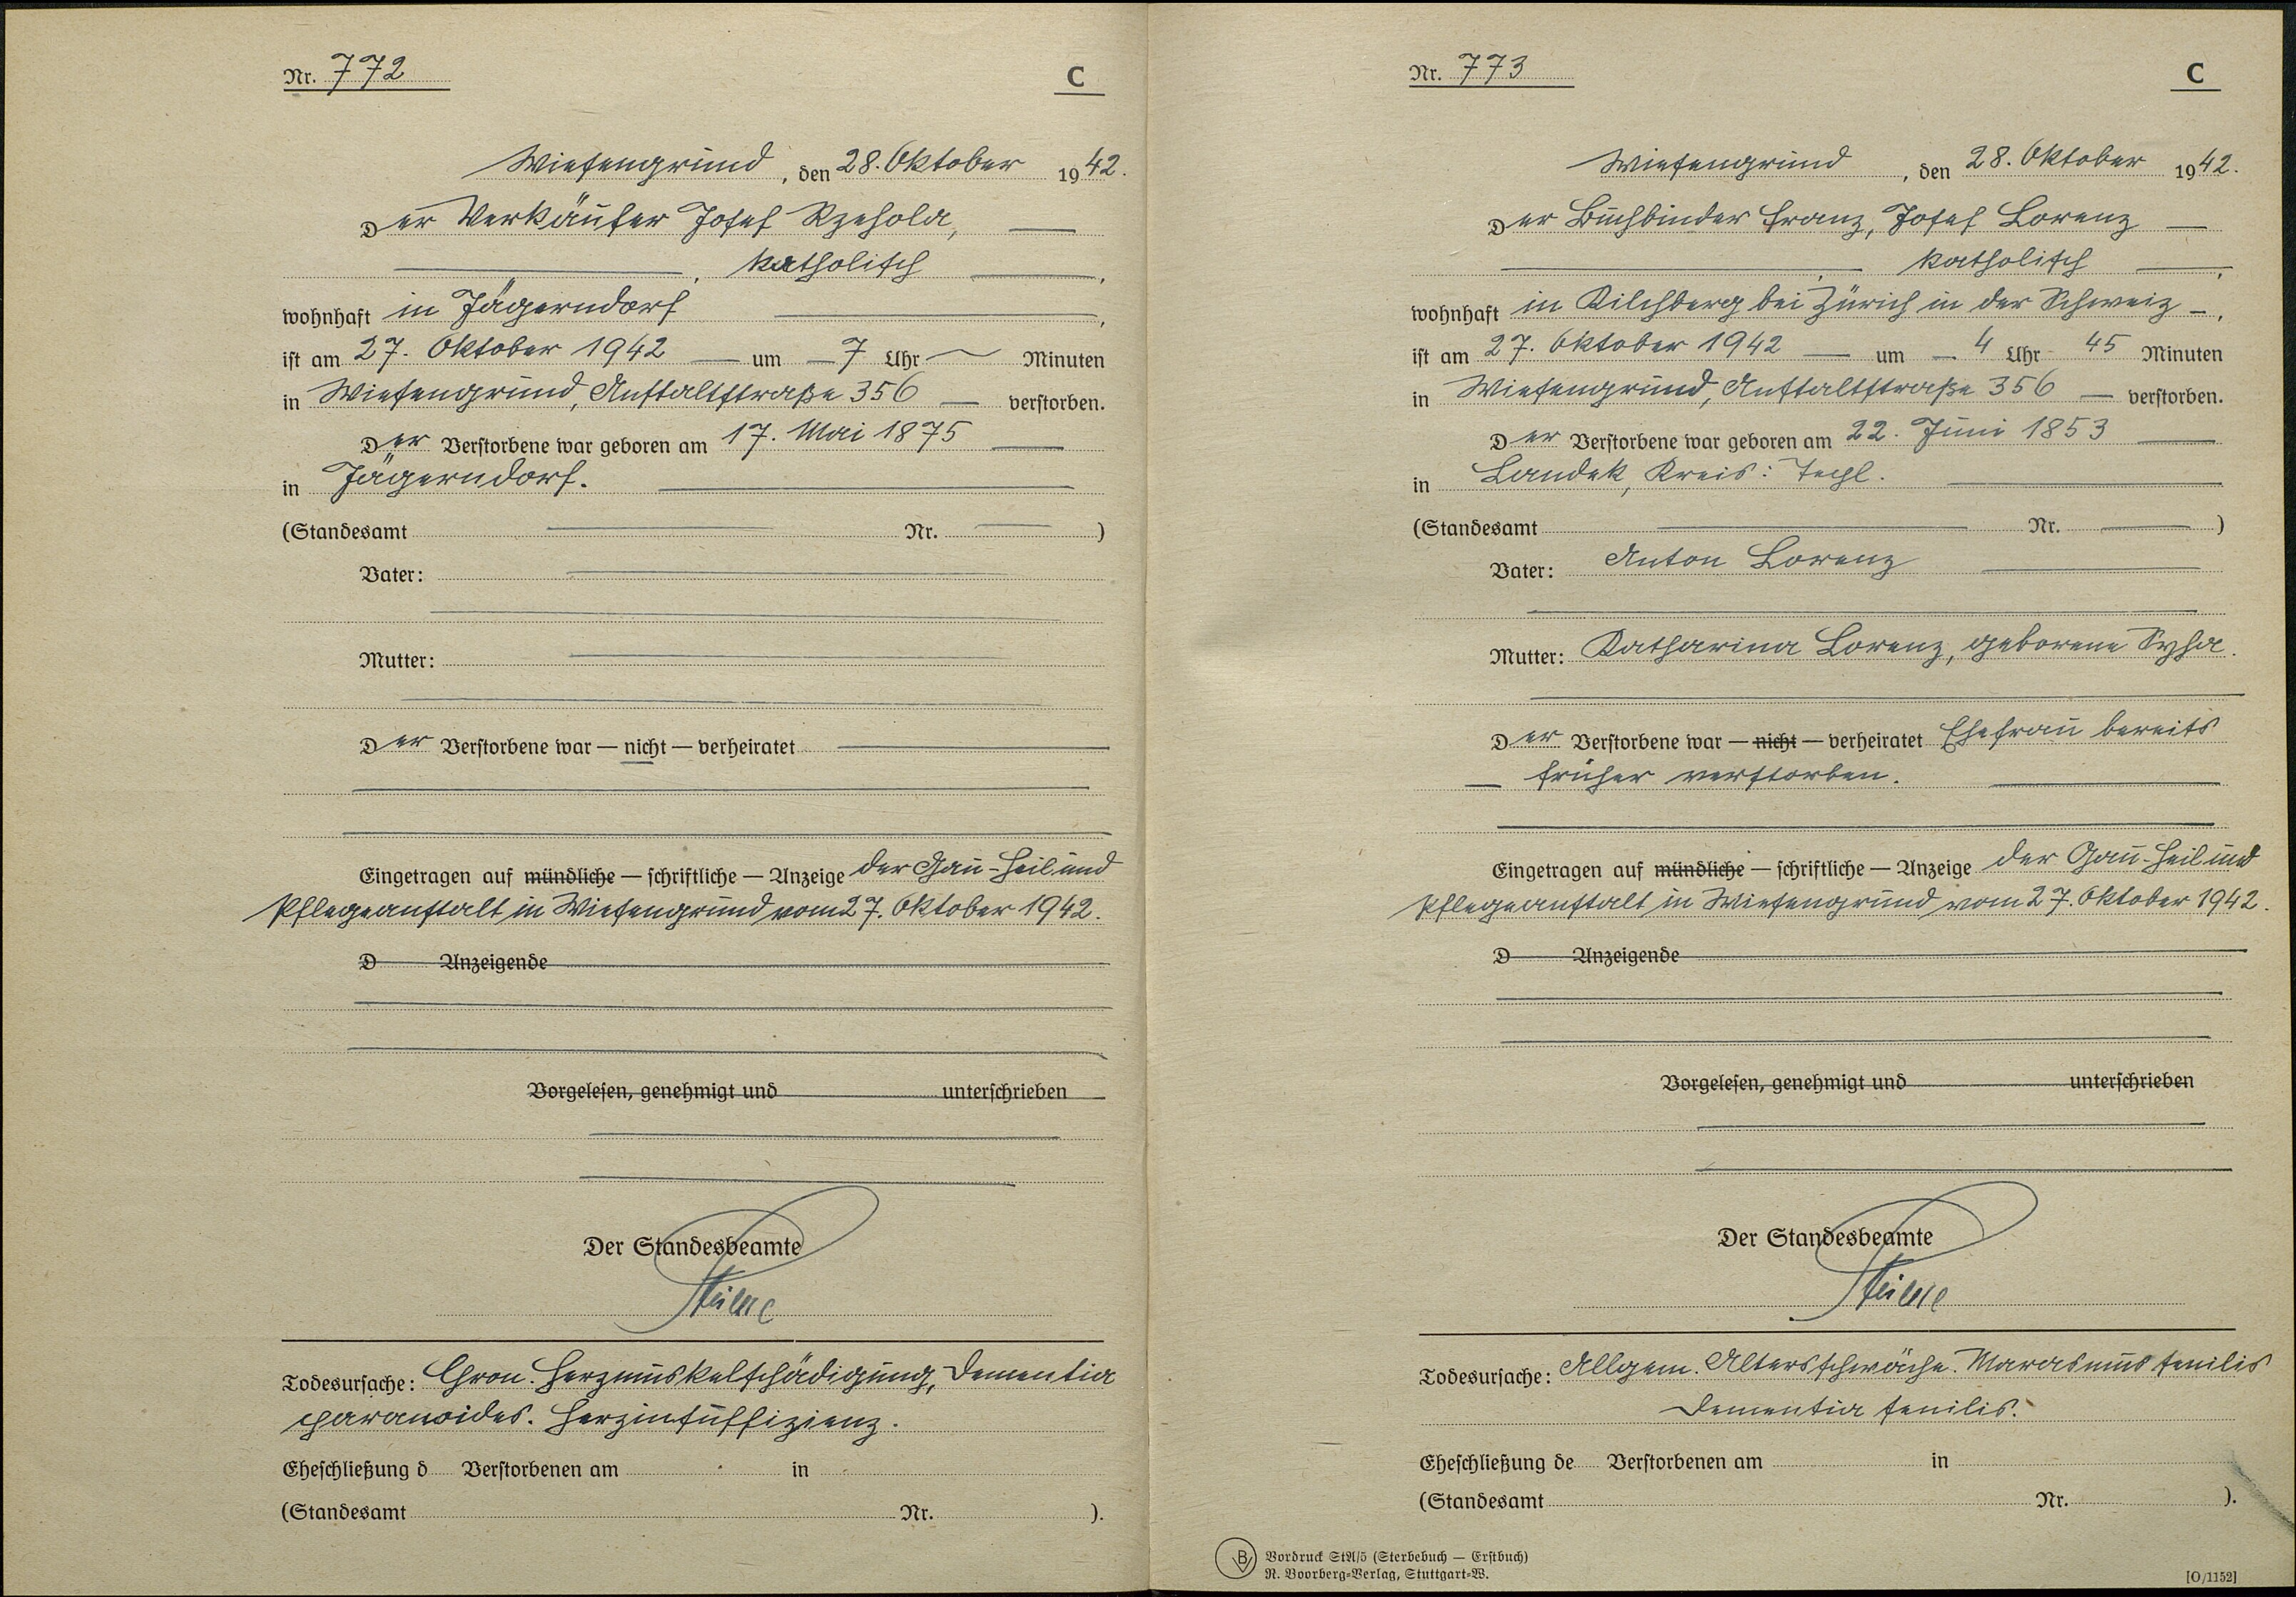 Nr. 772
C
Wiesengrund, den 28. Oktober 1942.
Der Verkäufer Josef Rzehola,
katholisch
wohnhaft in Jägerndorf
ist am 27. Oktober 1942 um 7 Uhr Minuten
in Wiesengrund, Anstaltstraße 356 verstorben.
Der Verstorbene war geboren am 17. Mai 1875
in Jägerndorf.
(Standesamt Nr. )
Vater:
Mutter:
Der Verstorbene war — nicht — verheiratet
Eingetragen auf mündliche — schriftliche — Anzeige der Gau-Heil und
Pflegeanstalt in Wiesengrund vom 27. Oktober 1942.
D Anzeigende
Vorgelesen, genehmigt und unterschrieben
Der Standesbeamte
Todesursache: Chron. Herzmuskelschädigung, Dementia
paranoides. Herzinsuffizienz.
Eheschließung d Verstorbenen am in
(Standesamt Nr. ).
Nr. 773
C
Wiesengrund, den 28. Oktober 1942.
Der Buchbinder Franz, Josef Lorenz
katholisch
wohnhaft in Kilchberg bei Zürich in der Schweiz
ist am 27. Oktober 1942 um 4 Uhr 45 Minuten
in Wiesengrund, Anstaltstraße 356 verstorben.
Der Verstorbene war geboren am 22. Juni 1853
in Landek, Kreis: Tepl.
(Standesamt Nr. )
Vater: Anton Lorenz
Mutter: Katharina Lorenz, geborene Syha.
Der Verstorbene war — nicht — verheiratet Ehefrau bereits
früher verstorben.
Eingetragen auf mündliche — schriftliche — Anzeige der Gau-Heil und
Pflegeanstalt in Wiesengrund vom 27. Oktober 1942.
D Anzeigende
Vorgelesen, genehmigt und unterschrieben
Der Standesbeamte
Todesursache: Allgem. Altersschwäche. Marasmus senilis
Dementia senilis.
Eheschließung de Verstorbenen am in
(Standesamt Nr. ).
B Vordruck StA/5 (Sterbebuch — Erstbuch)
N. Voorberg-Verlag, Stuttgart-W.
[O/1152]